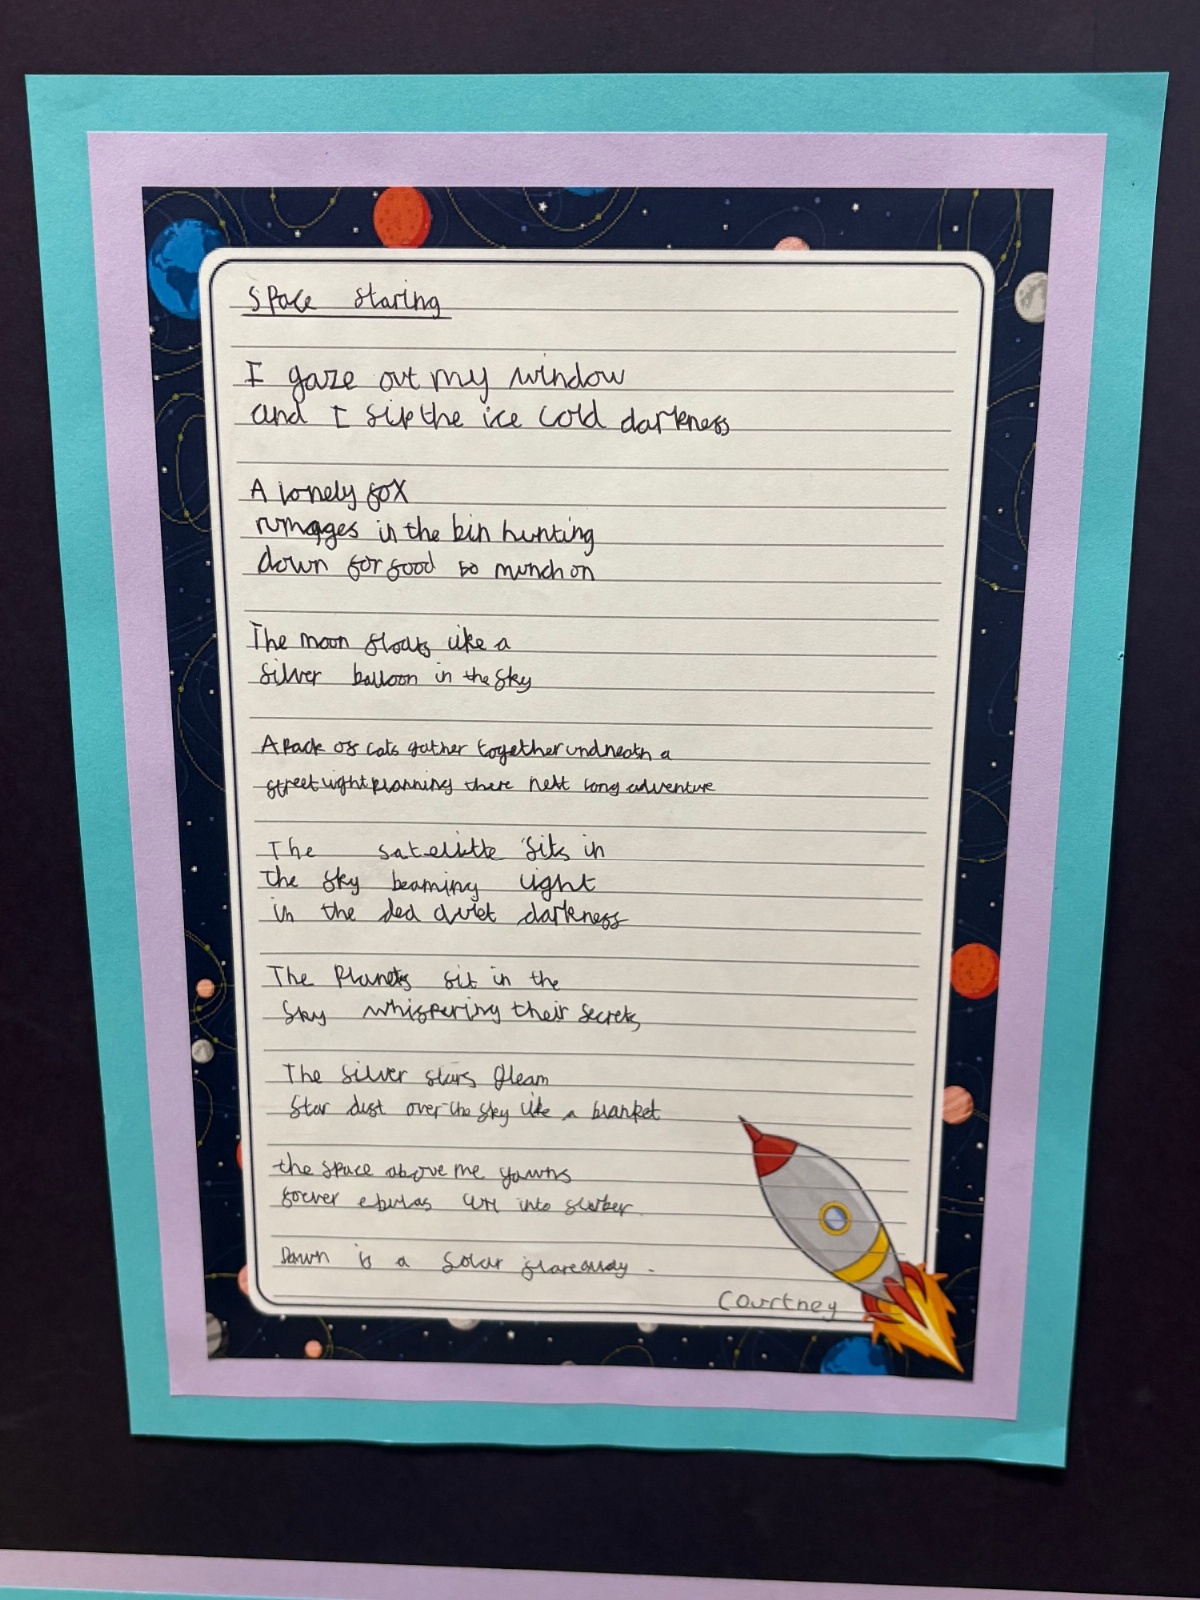 Space staring
I gaze out my window
and I sip the ice cold darkness
A lonely fox
rumages in the bin hunting
down for food to munch on
The moon floats like a
silver balloon in the sky
A pack of cats gather together undneath a
street light planning there next long adventure
The satelitte sits in
the sky beaming light
in the ded quiet darkness
The Planets sit in the
sky whispering their secrets
The silver stars gleam
Star dust over the sky like a blanket
the space above me yawns
forever into
Dawn is a solar flare away.
Courtney